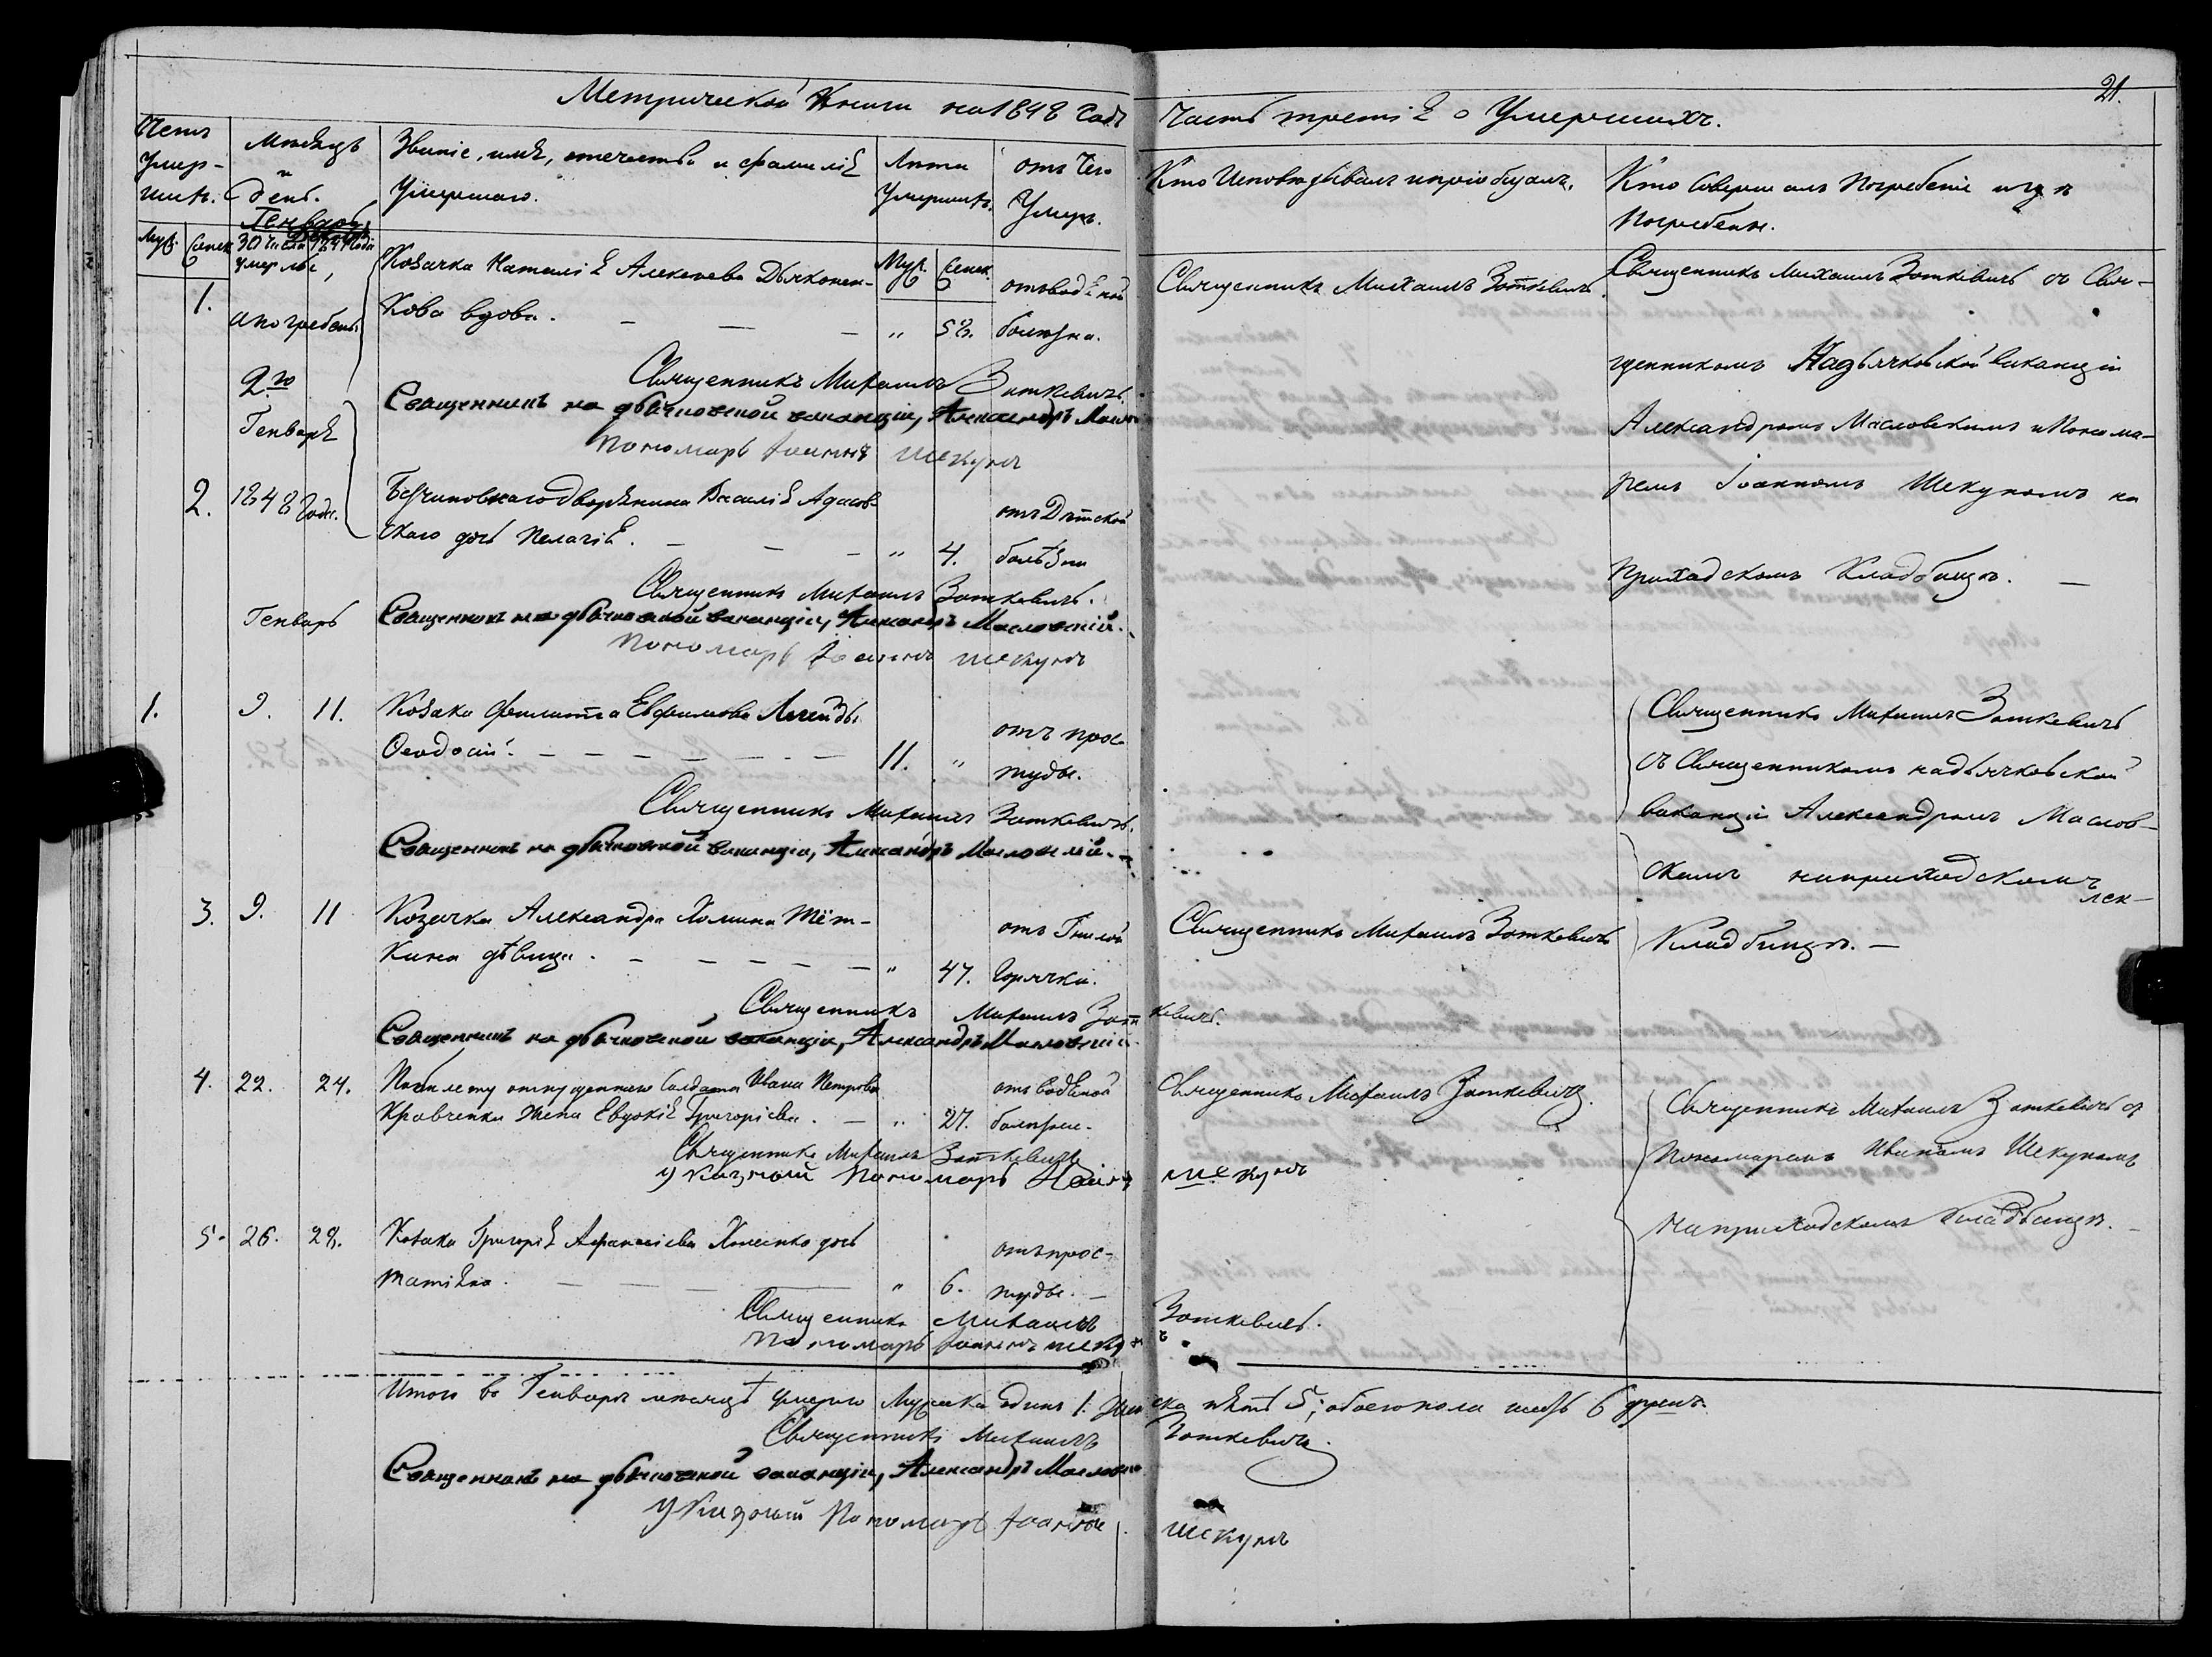 Метрической Книги на 1848 Годъ
Часть третія о Умершихъ.
21.
Счетъ Умер-шихъ.
Мѣсяцъ и день.
Званіе, имя, отечество и фамилія Умершаго.
Лѣта Умершихъ.
отъ Чего Умеръ.
Кто Исповѣдывалъ и пріобщалъ.
Кто Совершалъ Погребеніе и гдѣ Погребены.
Муж. Женск.
Генварь
30 числа 1847 Года
умерлые,
а погребены
2го
Генваря
1848 Года.
Муж. Женск.
1.
Козачка Наталія Алексеева Дьяконен-
кова вдова. — — — " 58.
отъ водяной
болѣзни.
Священникъ Михаилъ Зоткевичъ.
Священникъ Михаилъ Зоткевичъ съ Свя-
щенникомъ На дьячковской вакансіи
Александромъ Масловскимъ и Понома-
ремъ Іоанномъ Шекуномъ на
приходскомъ Кладбищѣ. —
Священникъ Михаилъ Зоткевичъ.
Священникъ на дьячковской вакансіи, Александръ Маслов
Пономарь Іоаннъ Шекунъ
2.
дворянина Василія
дочь Пелагія. — — — " 4.
отъ Дѣтской
болѣзни
Священникъ Михаилъ Зоткевичъ.
Священникъ на дьячковской вакансіи, Александръ Масловскій.
Пономарь Іоаннъ Шекунъ
Генварь
1. 9. 11.
Козака Филиппа Евфимова
Феодосій. — — — — — — 11. "
отъ прос-
туды.
Священникъ Михаилъ Зоткевичъ
съ Священникомъ на дьячковской
вакансіи Александромъ Маслов-
скимъ на приходскомъ
Кладбищѣ. —
Священникъ Михаилъ Зоткевичъ.
Священникъ на дьячковской вакансіи, Александръ Масловскій.
3. 9. 11
Козачка Александра Хомина Тёт-
кина дѣвица. — — — — — " 47.
отъ Гнилой
Горячки.
Священникъ Михаилъ Зоткевичъ
Священникъ Михаилъ Зоткевичъ.
Священникъ на дьячковской вакансіи, Александръ Масловскій
4. 22. 24.
По билету отпущеннаго Солдата Ивана Петрова
Кравченка жена Евдокія Григоріева. — " 27.
отъ водяной
болѣзни.
Священникъ Михаилъ Зоткевичъ.
Священникъ Михаилъ Зоткевичъ съ
Пономаремъ Иваномъ Шекуномъ
на приходскомъ кладбищѣ. —
Священникъ Михаилъ Зоткевичъ
Указный Пономарь Іоаннъ Шекунъ
5. 26. 28.
Козака Григорія Афанасіева дочь
Татіяна. — — — " 6.
отъ прос-
туды. —
Священникъ Михаилъ Зоткевичъ.
Пономарь Іоаннъ Шекунъ
Итого въ Генварѣ мѣсяцѣ умерло Мужска одинъ 1. Женска пять 5; обоего пола шесть 6 душъ.
Священникъ Михаилъ Зоткевичъ.
Священникъ на дьячковской вакансіи, Александръ Маслов
Указный Пономарь Іоаннъ Шекунъ